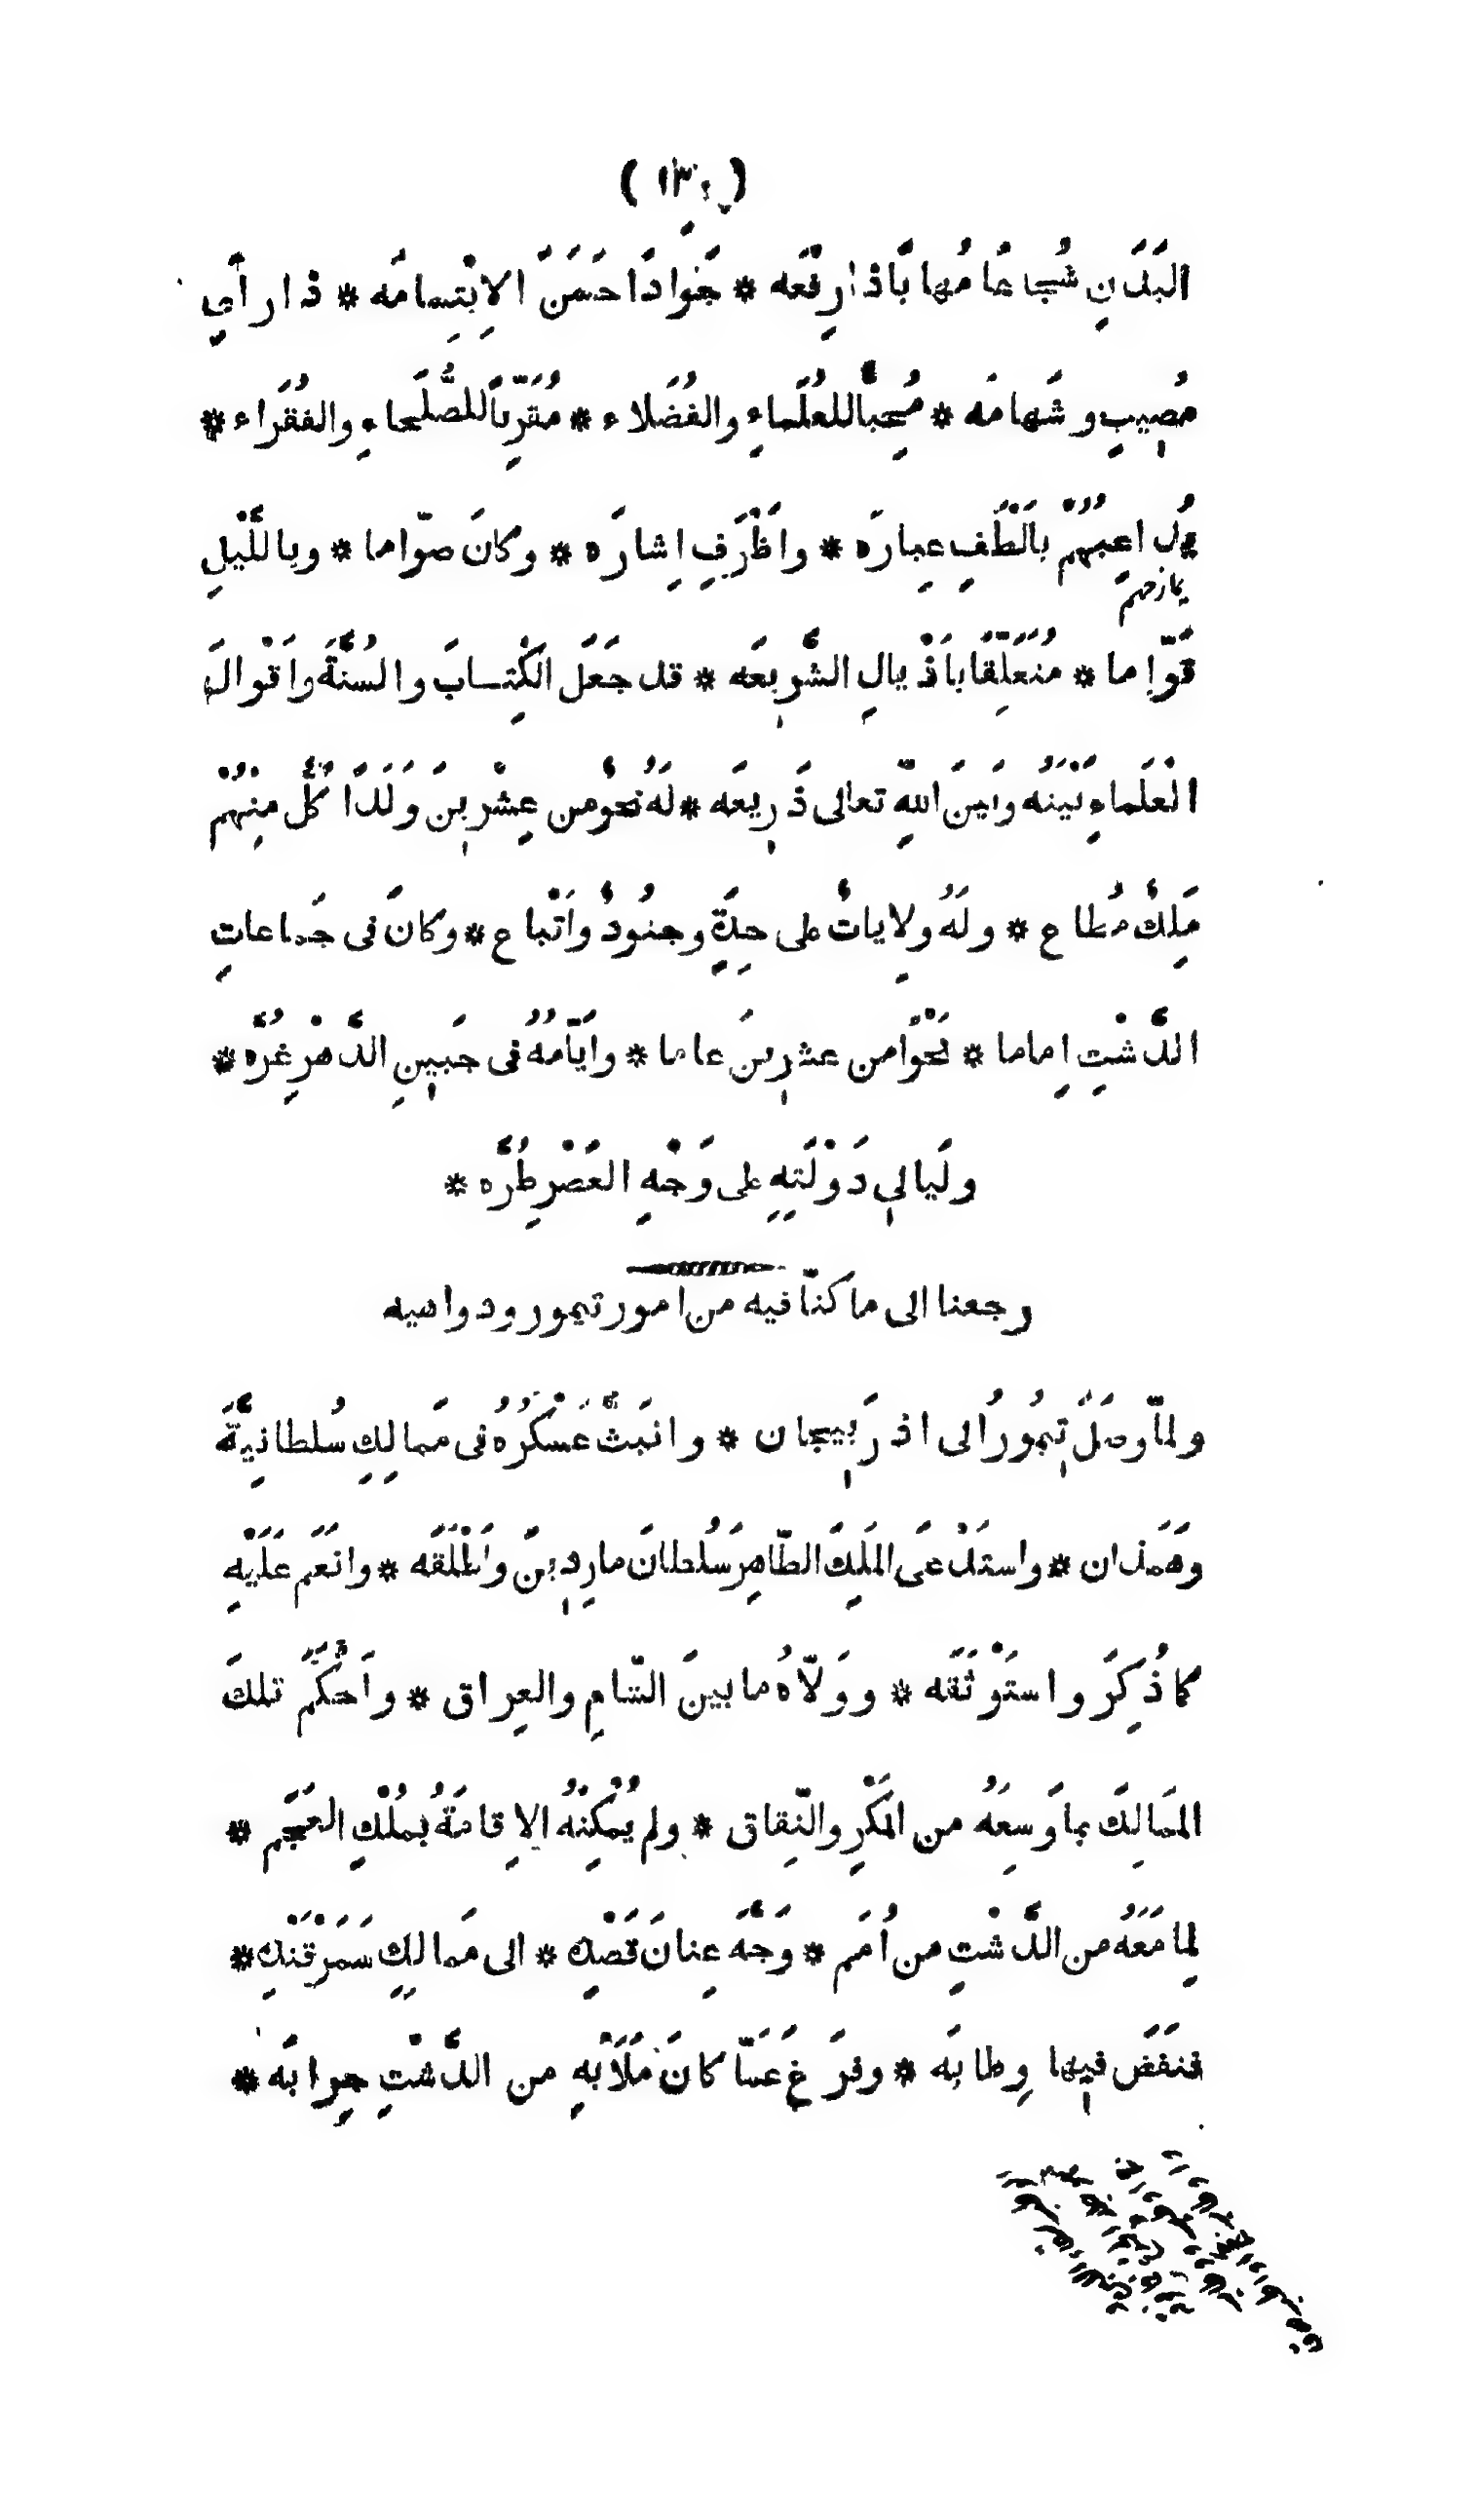 (١٣٠)
البَدَنِ شُجاعًا مُهابًا ذا رِفْعَه * جَوادًا حَسَنَ الاِبْتِسامَه * ذا رأيٍ
مُصيبٍ وشَهامَه * مُحِبًّا للعُلَماءِ والفُضَلاء * مُقَرِّبًا للصُّلَحاءِ والفُقَراء *
يُداعِبُهُمْ بالْطَفِ عِبارَه * واَظْرَفِ اِشارَه * وكانَ صوّاما * وباللَّيْلِ
يمازحهم
قَوّاما * مُتَعَلِّقًا باَذْيالِ الشَّريعَه * قد جَعَلَ الكِتسابَ والسُنَّةَ واَقْوالَ
العُلَماءِ بَيْنَهُ وبَينَ اللّهِ تعالى ذَريعَه * لَهُ نحوٌ من عِشْرينَ وَلَدًا كُلٌّ مِنهُمْ
مَلِكٌ مُطاع * ولَهُ وِلاياتٌ على حِدَةٍ وجنُودٌ واَتْباع * وكانَ فى جَماعاتِ
الدَّشْتِ اِماما * نَحْوًا من عشرينَ عاما * واَيّامُهُ فى جَبينِ الدَّهْرِ غُرَّه *
ولَيالي دَوْلَتِهِ على وَجْهِ العَصْرِ طُرَّه *
رجعنا الى ما كنّا فيه من امور تيمور ودواهيه
ولمّا وصَلَ تيمُورُ الى اذرَبيجان * وانبَثَّ عَسْكَرُهُ فى مَمالِكِ سُلطانِيَّةَ
وهَمَذان * واستَدْعَى المَلِكَ الظّاهِرَ سُلطانَ مارِدينَ واَطْلَقَه * واَنعَم عَلَيْهِ
كما ذُكِرَ واستَوْثَقَه * ووَلّاهُ ما بينَ الشامِ والعِراق * واَحْكَمَ تلكَ
المَمالِكَ بما وَسِعَهُ من المَكْرِ والنِّفاق * ولم يُمْكِنْهُ الاِقامَةُ بمُلْكِ العَجَم *
لِما مَعَهُ من الدَّشْتِ من اُمَم * وَجَّهَ عِنانَ قَصْدِه * الى مَمالِكِ سَمَرْقَنْدِه *
فنفَضَ فيها وِطابَه * وفرَغ عَمّا كانَ مَلَأَ بِهِ من الدَّشْتِ جِرابَه *